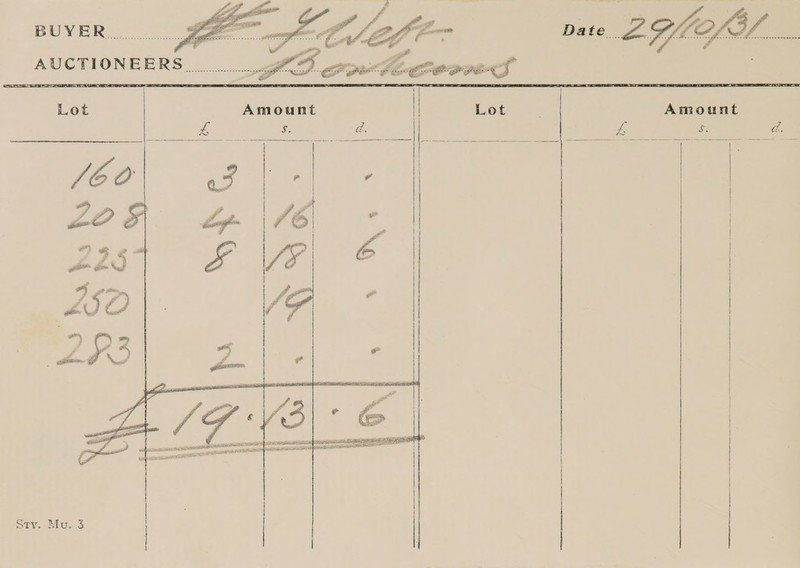 BUYER W F Webb Date 29/10/31
AUCTIONEERS Bonhams
Lot Amount Lot Amount
£ s. d. £ s. d.
160 3 . .
208 4 16 .
225 8 18 6
250 19 .
283 2 . .
£19.13.6
STY. MU. 3